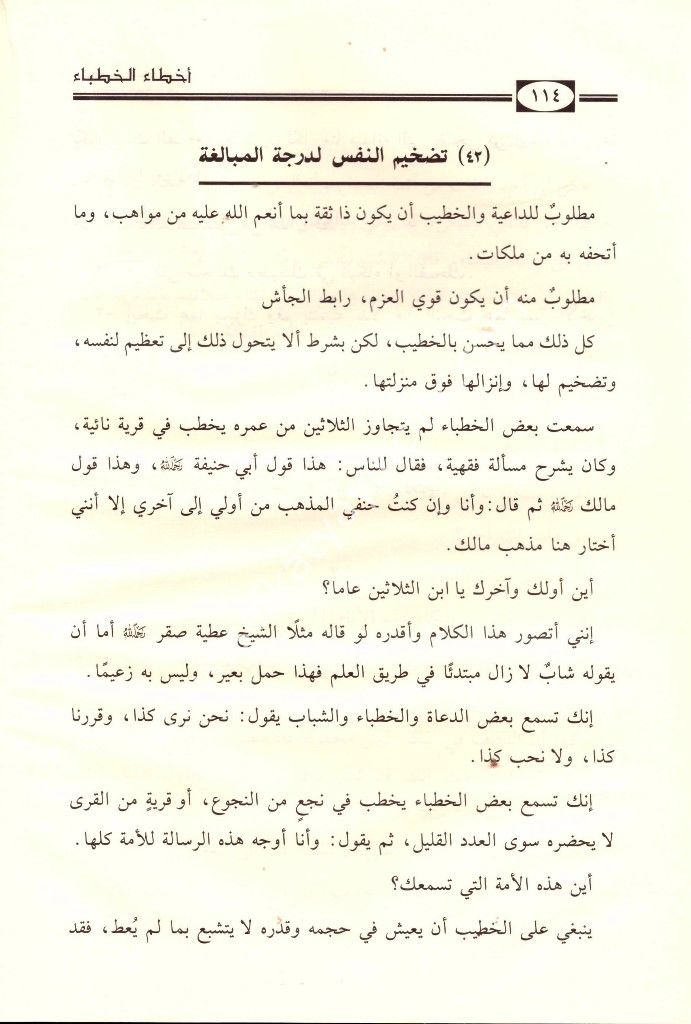 أخطاء الخطباء
١١٤
(٤٢) تضخيم النفس لدرجة المبالغة
مطلوبٌ للداعية والخطيب أن يكون ذا ثقة بما أنعم الله عليه من مواهب، وما
أتحفه به من ملكات.
مطلوبٌ منه أن يكون قوي العزم، رابط الجأش
كل ذلك مما يحسن بالخطيب، لكن بشرط ألا يتحول ذلك إلى تعظيم لنفسه،
وتضخيم لها، وإنزالها فوق منزلتها.
سمعت بعض الخطباء لم يتجاوز الثلاثين من عمره يخطب في قرية نائية،
وكان يشرح مسألة فقهية، فقال للناس: هذا قول أبي حنيفة رَحِمَهُ اللهُ، وهذا قول
مالك رَحِمَهُ اللهُ ثم قال: وأنا وإن كنتُ حنفي المذهب من أولي إلى آخري إلا أنني
أختار هنا مذهب مالك.
أين أولك وآخرك يا ابن الثلاثين عاما؟
إنني أتصور هذا الكلام وأقدره لو قاله مثلًا الشيخ عطية صقر رَحِمَهُ اللهُ أما أن
يقوله شابٌ لا زال مبتدئًا في طريق العلم فهذا حمل بعير، وليس به زعيمًا.
إنك تسمع بعض الدعاة والخطباء والشباب يقول: نحن نرى كذا، وقررنا
كذا، ولا نحب كذا.
إنك تسمع بعض الخطباء يخطب في نجعٍ من النجوع، أو قريةٍ من القرى
لا يحضره سوى العدد القليل، ثم يقول: وأنا أوجه هذه الرسالة للأمة كلها.
أين هذه الأمة التي تسمعك؟
ينبغي على الخطيب أن يعيش في حجمه وقدره لا يتشبع بما لم يُعط، فقد